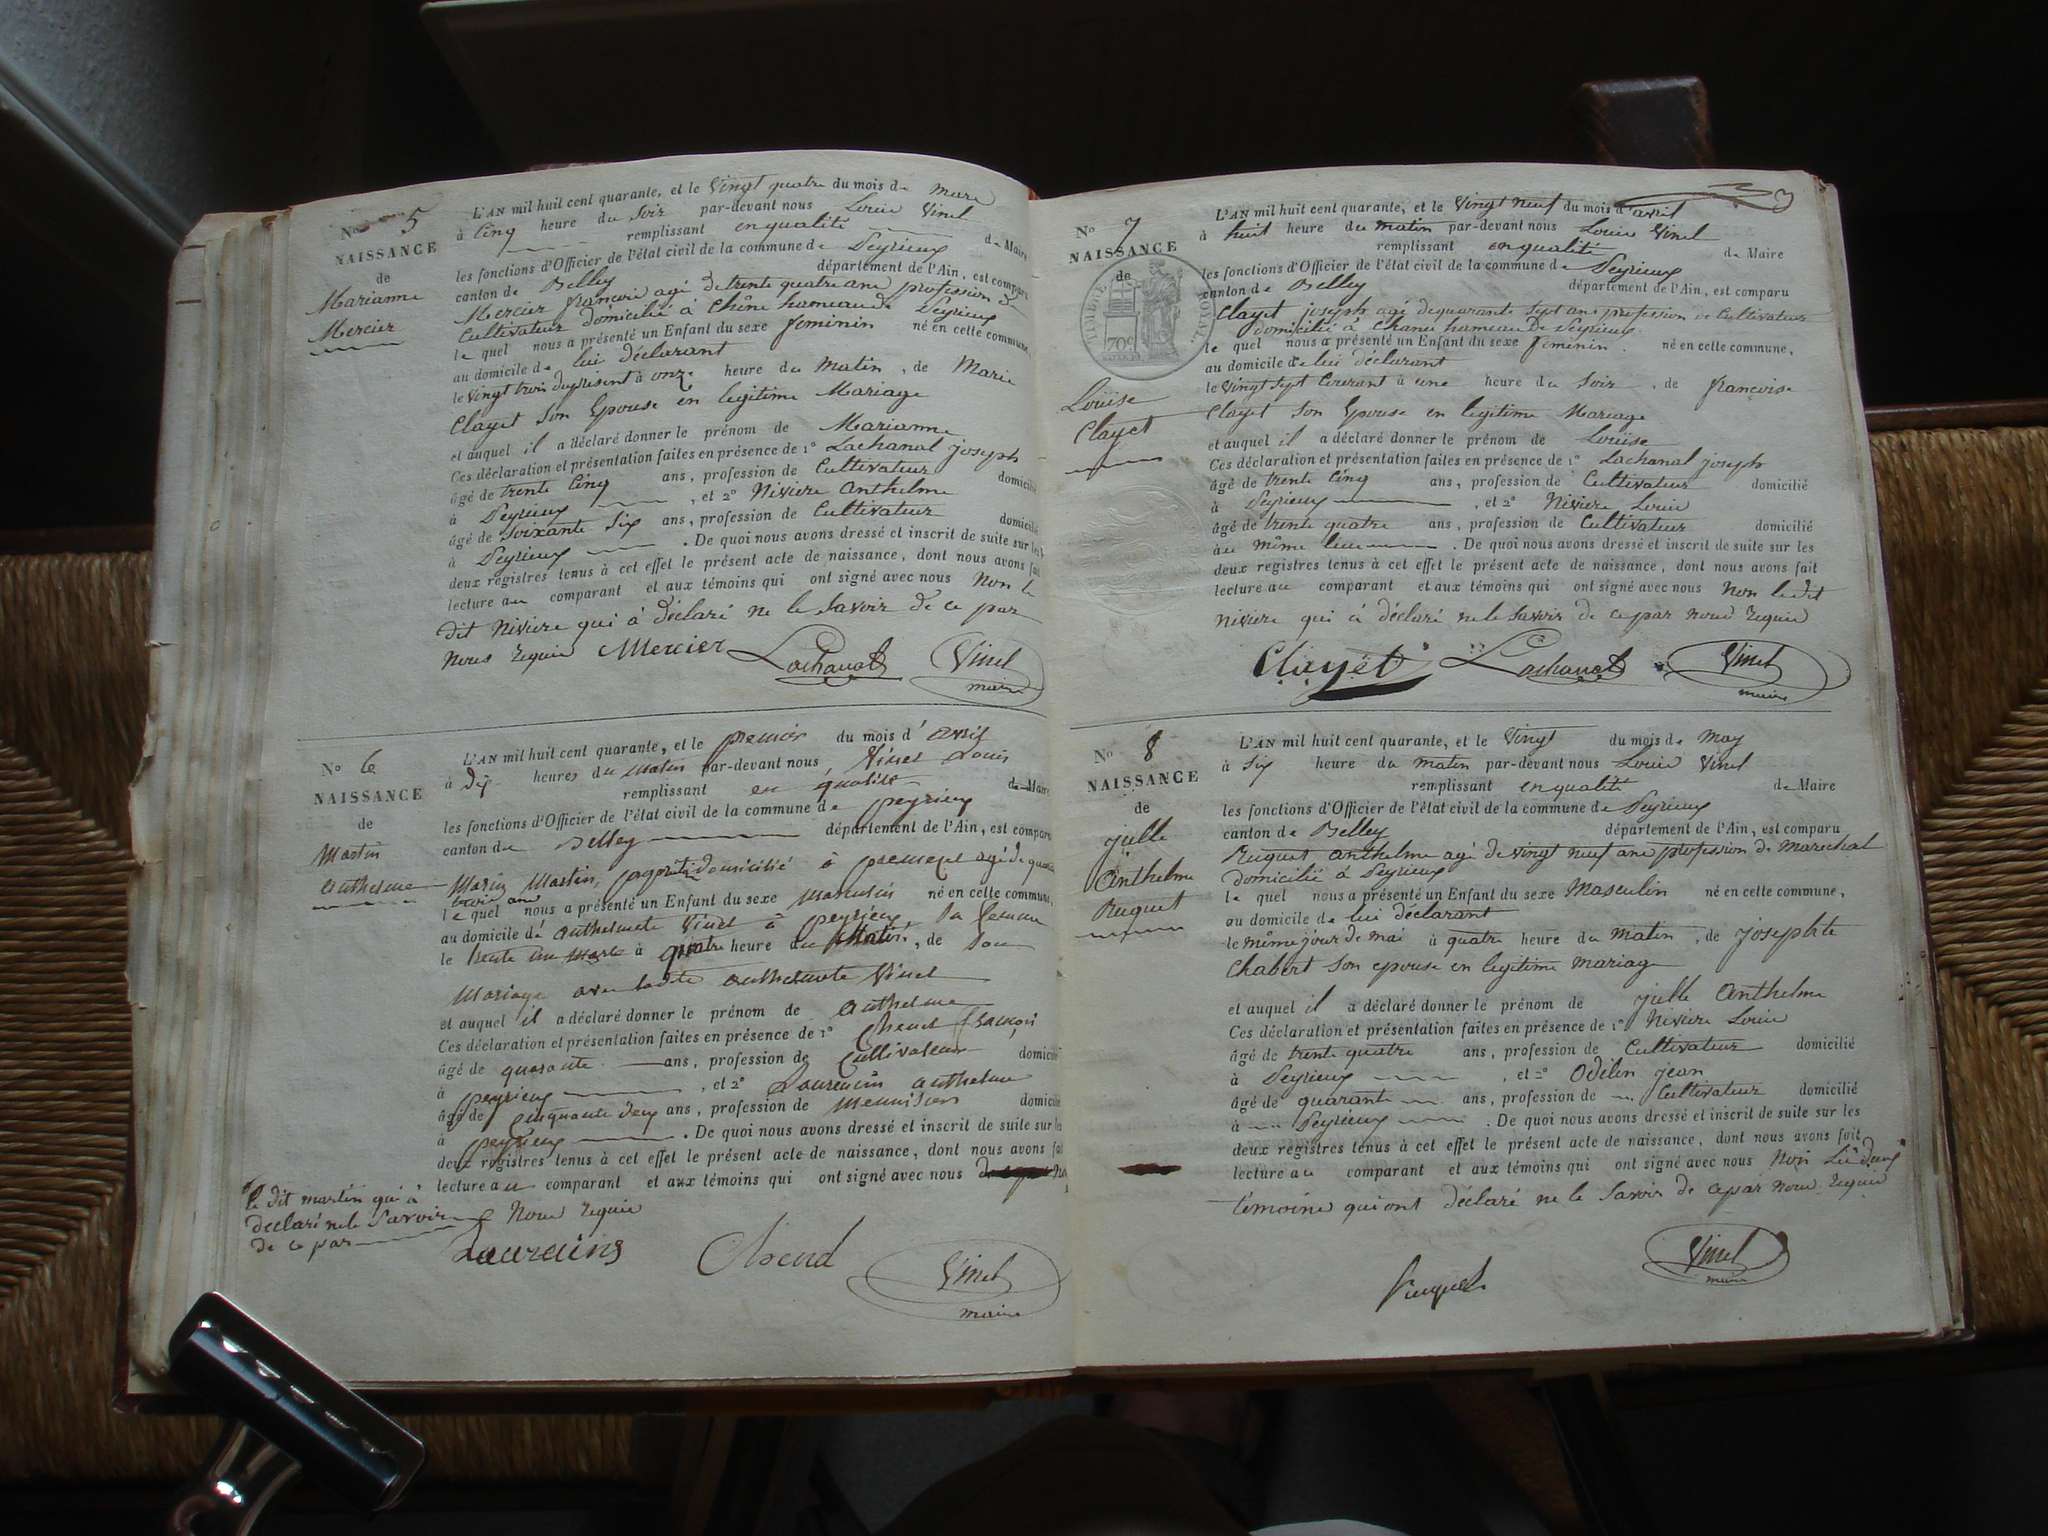 N° 5
NAISSANCE
de
Marianne
Mercier
L'AN mil huit cent quarante, et le Vingt quatre du mois de mars
à Cinq heure du Soir par-devant nous Louis Vinel
remplissant en qualité de Maire
les fonctions d'Officier de l'état civil de la commune de Peyrieux
canton de Belley département de l'Ain, est comparu
Mercier françois agé de trente quatre ans profession de
Cultivateur domicilié à Chêne hameau de Peyrieux
le quel nous a présenté un Enfant du sexe feminin né en cette commune,
au domicile de lui déclarant
le Vingt trois du présent à onze heure du Matin, de Marie
Clayet Son Epouse en legitime Mariage
et auquel il a déclaré donner le prénom de Marianne
Ces déclaration et présentation faites en présence de 1° Lachanal joseph
âgé de trente Cinq ans, profession de Cultivateur domicilié
à Peyrieux, et 2° Niviere Anthelme
âgé de Soixante Six ans, profession de Cultivateur domicilié
à Peyrieux. De quoi nous avons dressé et inscrit de suite sur les
deux registres tenus à cet effet le présent acte de naissance, dont nous avons fait
lecture au comparant et aux témoins qui ont signé avec nous Non le
dit Niviere qui à déclaré ne le Savoir de ce par
Nous Requis Mercier Lachanal Vinel
maire
N° 6
NAISSANCE
de
Martin
anthelme
L'AN mil huit cent quarante, et le premier du mois d'avril
à dix heures du matin par-devant nous, Vinel Louis
remplissant en qualité de Maire
les fonctions d'Officier de l'état civil de la commune de peyrieux
canton de Belley département de l'Ain, est comparu
Martin, domicilié à premeyzel agé de quarante
trois ans
le quel nous a présenté un Enfant du sexe masculin né en cette commune,
au domicile de anthelmete Vinel à peyrieux, sa femme
le trente un mars à quatre heure du Matin, de Son
Mariage avec ladite anthelmete Vinel
et auquel il a déclaré donner le prénom de anthelme
Ces déclaration et présentation faites en présence de 1° françois
âgé de quarante ans, profession de Cultivateur domicilié
à peyrieux, et 2° Laurencin anthelme
âgé de Cinquante deux ans, profession de Menuisier domicilié
à peyrieux. De quoi nous avons dressé et inscrit de suite sur les
deux registres tenus à cet effet le présent acte de naissance, dont nous avons fait
lecture au comparant et aux témoins qui ont signé avec nous Non
le dit martin qui à
déclaré ne le Savoir
de ce par
Nous Requis
Vinel
maire
3
N° 7
NAISSANCE
de
TIMBRE ROYAL
70c
Louise
Clayet
L'AN mil huit cent quarante, et le Vingt neuf du mois d'avril
à huit heure du matin par-devant nous Louis Vinel
remplissant en qualité de Maire
les fonctions d'Officier de l'état civil de la commune de Peyrieux
canton de Belley département de l'Ain, est comparu
Clayet joseph agé de quarante Sept ans profession de Cultivateur
domicilié à Chanes hameau De Peyrieux
le quel nous a présenté un Enfant du sexe feminin né en cette commune,
au domicile de lui déclarant
le Vingt Sept Courant à une heure du Soir, de françoise
Clayet Son Epouse en legitime Mariage
et auquel il a déclaré donner le prénom de Louise
Ces déclaration et présentation faites en présence de 1° Lachanal joseph
âgé de trente Cinq ans, profession de Cultivateur domicilié
à Peyrieux, et 2° Niviere Louis
âgé de trente quatre ans, profession de Cultivateur domicilié
au même lieu. De quoi nous avons dressé et inscrit de suite sur les
deux registres tenus à cet effet le présent acte de naissance, dont nous avons fait
lecture au comparant et aux témoins qui ont signé avec nous Non le dit
Niviere qui à déclaré ne le Savoir de ce par nous Requis
Clayet Lachanal Vinel
maire
N° 8
NAISSANCE
de
julle
Anthelme
Ruguet
L'AN mil huit cent quarante, et le Vingt du mois de May
à Six heure du matin par-devant nous Louis Vinel
remplissant en qualité de Maire
les fonctions d'Officier de l'état civil de la commune de Peyrieux
canton de Belley département de l'Ain, est comparu
Ruguet anthelme agé de vingt neuf ans profession de Marechal
domicilié à Peyrieux
le quel nous a présenté un Enfant du sexe Masculin né en cette commune,
au domicile de lui déclarant
le même jour de mai à quatre heure du matin, de josephte
Chabert Son epouse en legitime mariage
et auquel il a déclaré donner le prénom de julle Anthelme
Ces déclaration et présentation faites en présence de 1° Niviere Louis
âgé de trente quatre ans, profession de Cultivateur domicilié
à Peyrieux, et 2° Odilin jean
âgé de quarante ans, profession de Cultivateur domicilié
à Peyrieux. De quoi nous avons dressé et inscrit de suite sur les
deux registres tenus à cet effet le présent acte de naissance, dont nous avons fait
lecture au comparant et aux témoins qui ont signé avec nous Non Les deux
témoins qui ont déclaré ne le Savoir de ce par Nous Requis
Vinel
maire